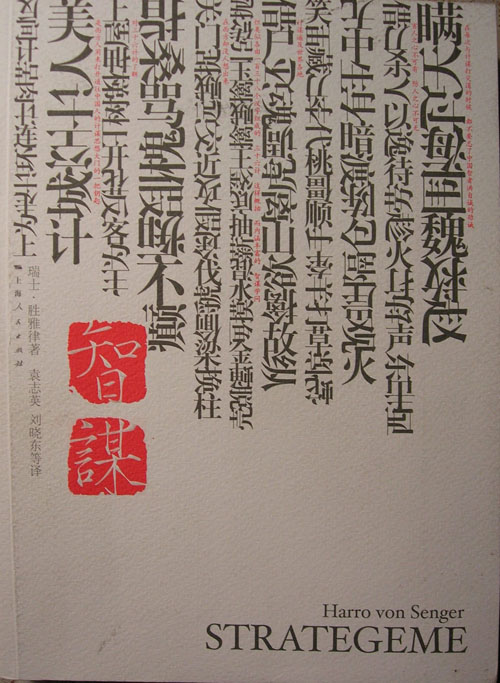 瞒天过海围魏救赵
借刀杀人以逸待劳趁火打劫声东击西
无中生有暗渡陈仓隔岸观火
笑里藏刀李代桃僵顺手牵羊打草惊蛇
借尸还魂调虎离山欲擒故纵
抛砖引玉擒贼擒王釜底抽薪浑水摸鱼金蝉脱壳
关门捉贼远交近攻假途伐虢偷梁换柱
指桑骂槐假痴不癫
上屋抽梯树上开花反客为主
美人计空城计
反间计苦肉计连环计走为上
智謀
瑞士·胜雅律著 袁志英 刘晓东等译
上海人民出版社
Harro von Senger
STRATEGEME